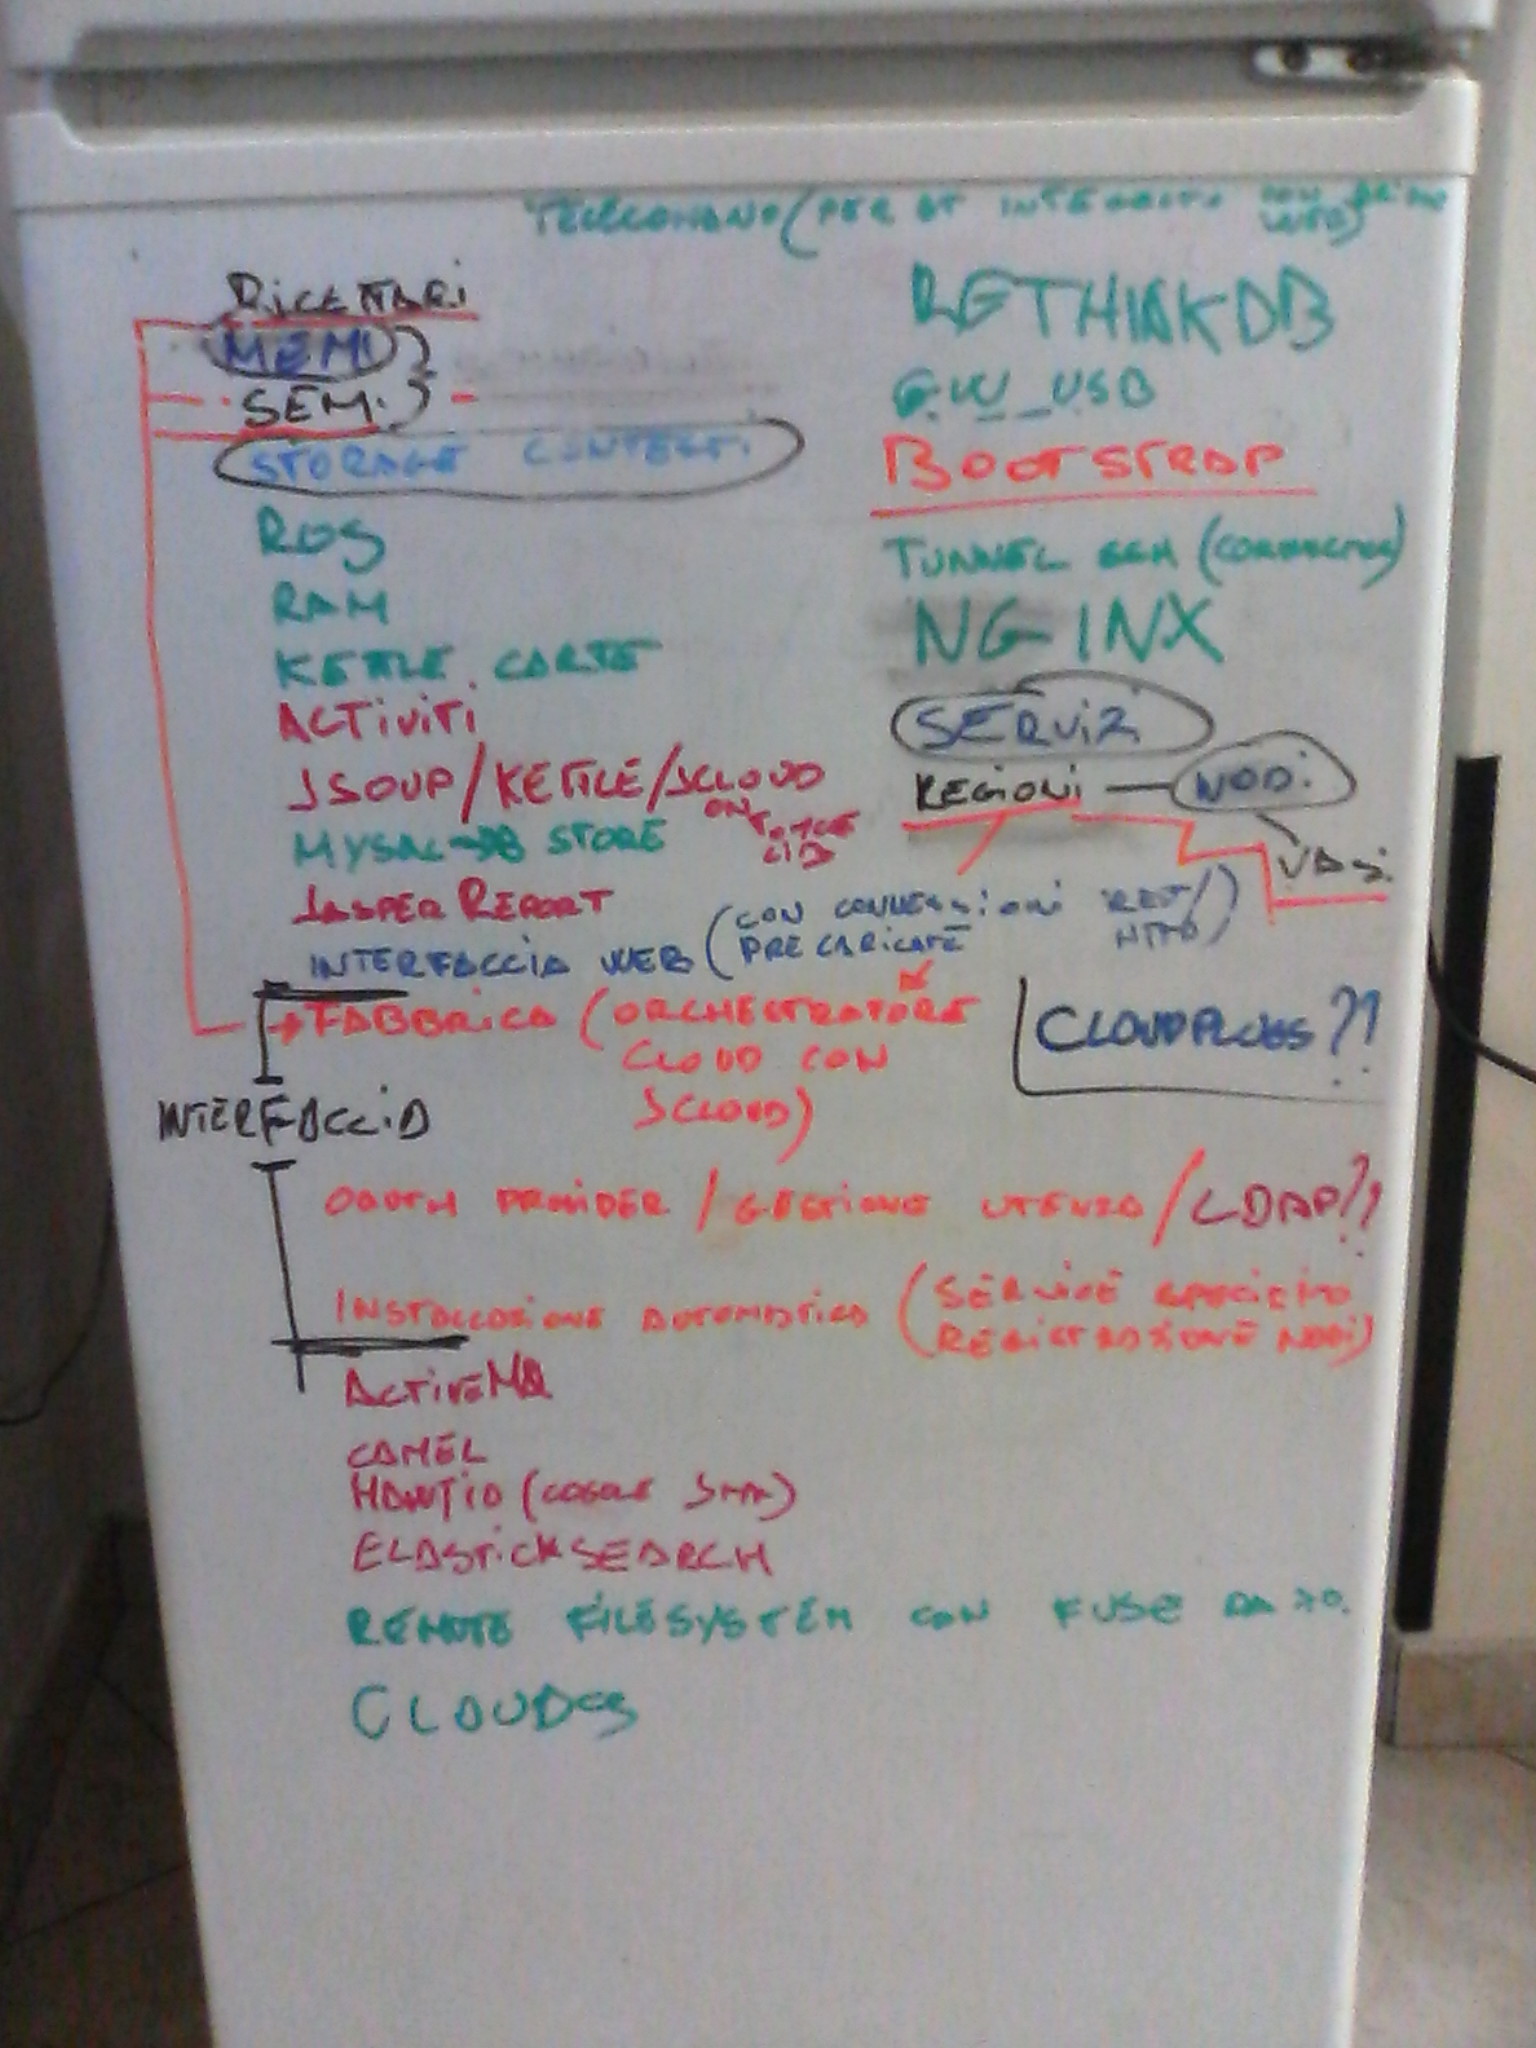 TELECOMAND (PER INTERAGIRE CON WEB)
MEMI
SEMI
STORAGE CONTESTI
ROS
RAM
KETTLE CARTE
ACTIVITI
JSOUP/KETTLE/JCLOUD
ON
MYSQL DB STORE
JASPER REPORT
INTERFACCIA WEB (CON CONNESSIONI REST/
PRECARICATE
→ FABBRICA (ORCHESTRATORE
CLOUD CON
JCLOUD)
INTERFACCIA
OAUTH PROVIDER / GESTIONE UTENZA / LDAP??
INSTALLAZIONE AUTOMATICA (SERVICE SPECIFICO
REGISTRAZIONE NODI)
ACTIVEMQ
CAMEL
HAWTIO (
ELASTICKSEARCH
REMOTE FILESYSTEM CON FUSE DA
CLOUD
RETHINKDB
GW_USB
BOOTSTRAP
TUNNEL SSH (
NGINX
SERVIZI
REGIONI — NODI
VASI
CLOUDPLUGS??